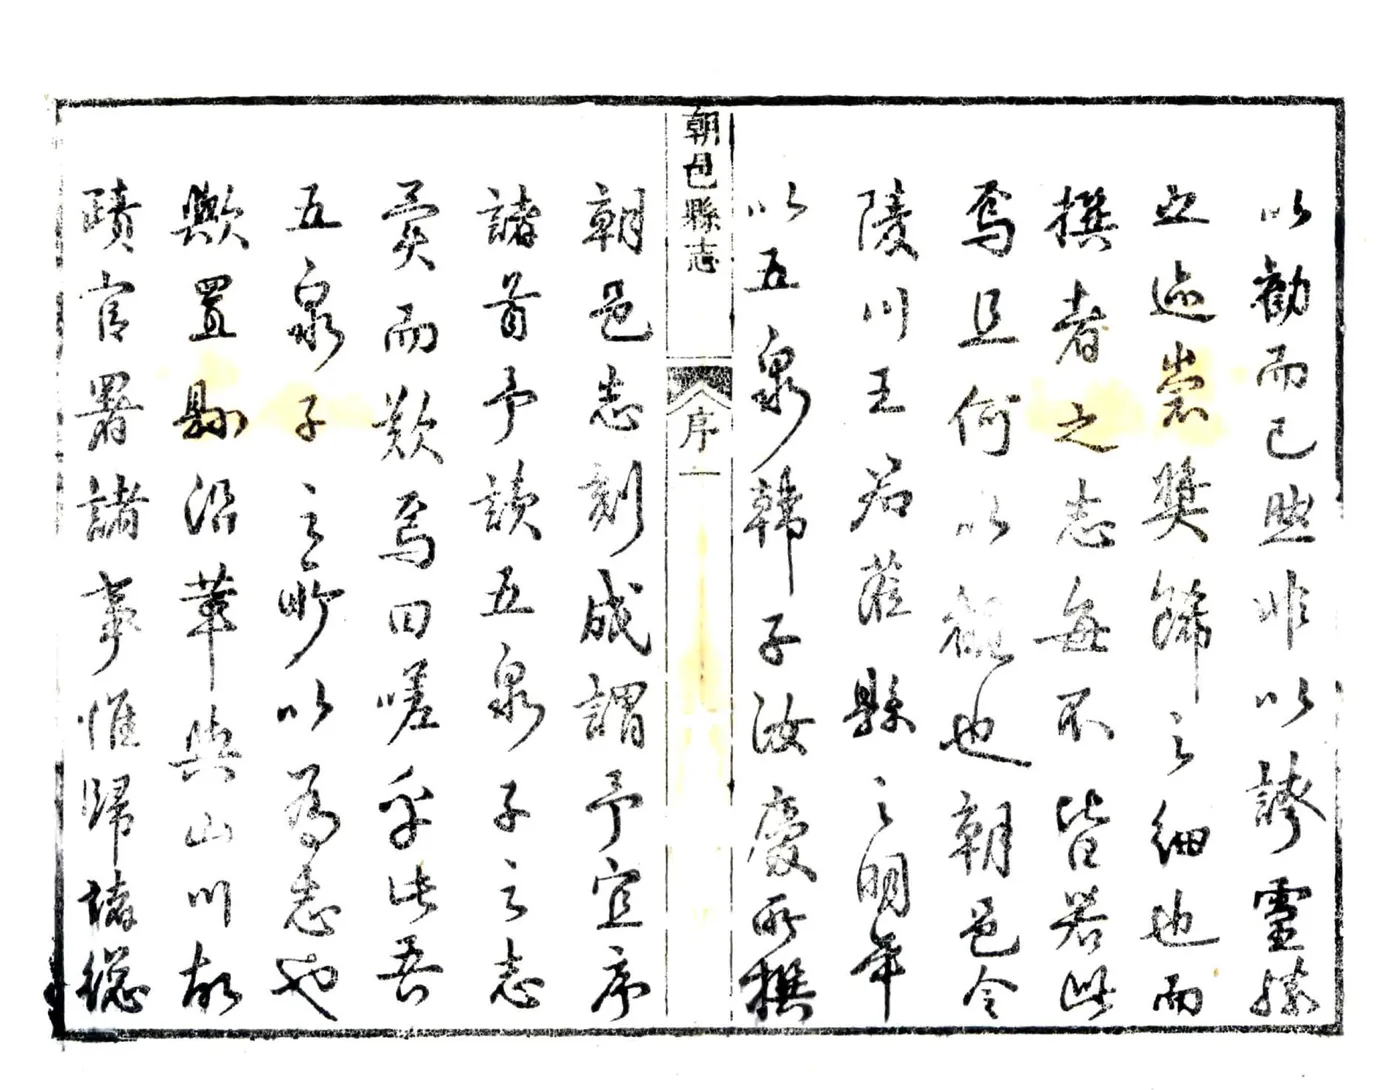 以勸而已然非以誇靈勝
之迹崇獎飾之細也而
撰者之志每不皆若此
焉且何以觀也朝邑令
陵川王君蒞縣之明年
以五泉韓子汝慶所撰
朝邑縣志
序
一
朝邑志刻成謂予宜序
諸首予讀五泉子之志
竟而歎焉曰嗟乎此吾
五泉子之所以為志也
歟置縣沿革與山川故
蹟官署諸事惟歸諸總